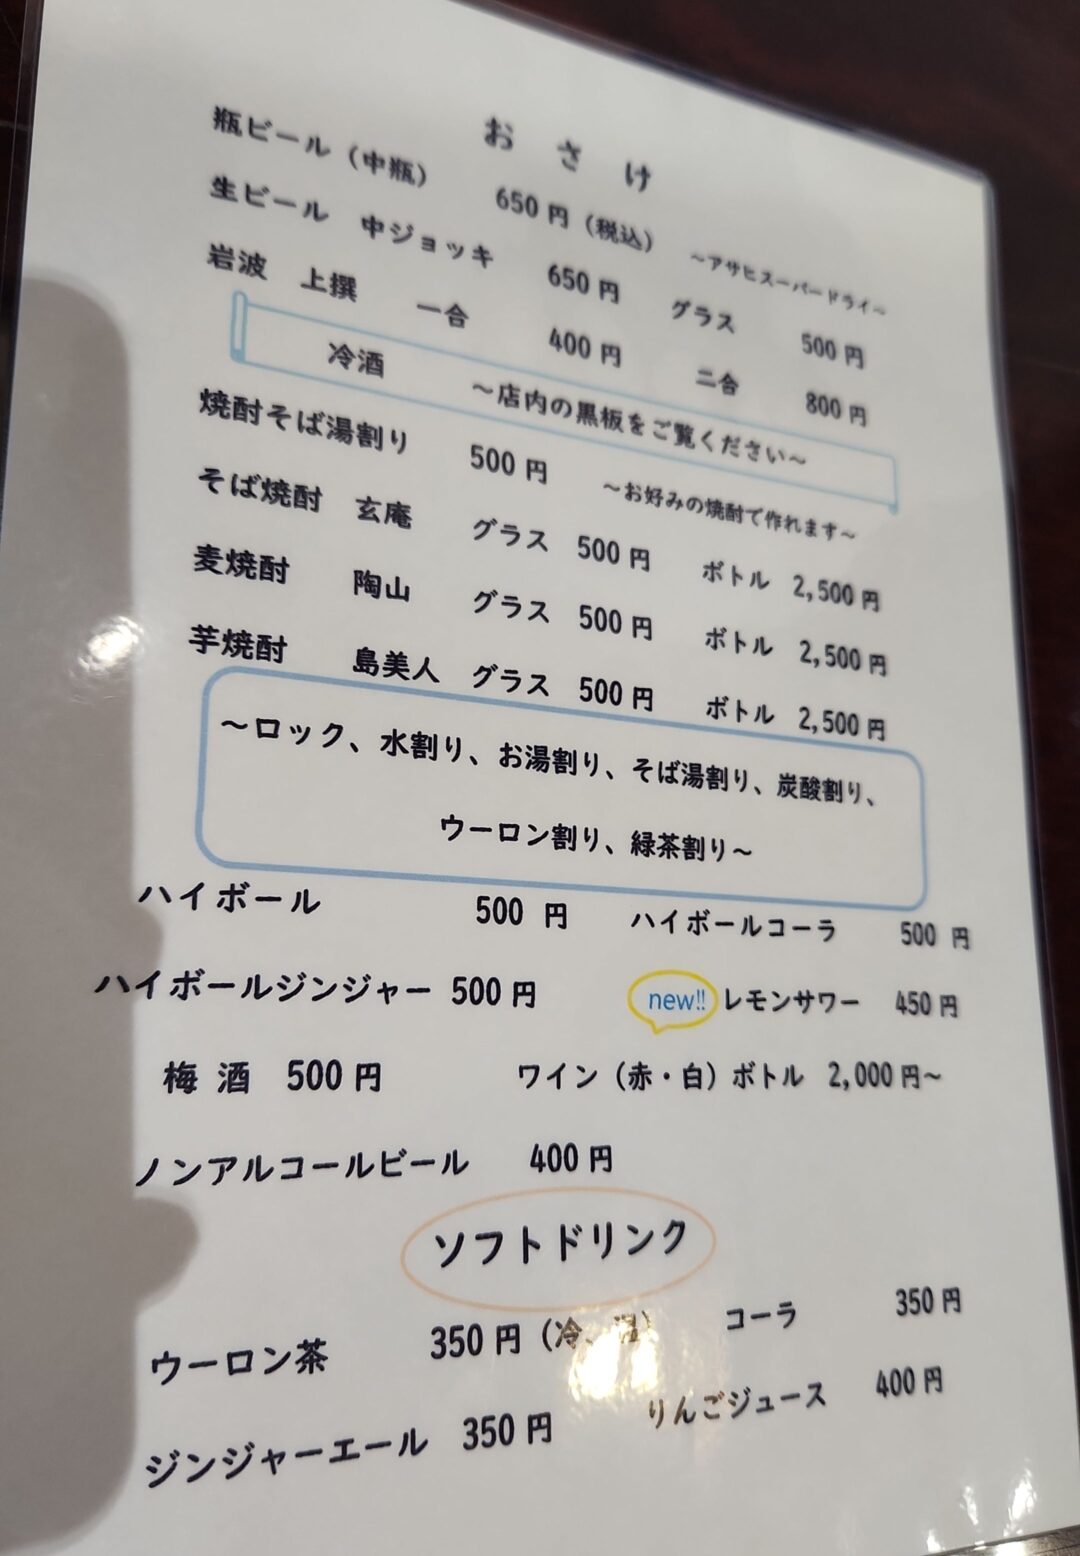 おさけ
瓶ビール（中瓶） 650円（税込） ～アサヒスーパードライ～
生ビール 中ジョッキ 650円 グラス 500円
岩波 上撰 一合 400円 二合 800円
冷酒 ～店内の黒板をご覧ください～
焼酎そば湯割り 500円 ～お好みの焼酎で作れます～
そば焼酎 玄庵 グラス 500円 ボトル 2,500円
麦焼酎 陶山 グラス 500円 ボトル 2,500円
芋焼酎 島美人 グラス 500円 ボトル 2,500円
～ロック、水割り、お湯割り、そば湯割り、炭酸割り、
ウーロン割り、緑茶割り～
ハイボール 500円 ハイボールコーラ 500円
ハイボールジンジャー 500円 new!! レモンサワー 450円
梅酒 500円 ワイン（赤・白）ボトル 2,000円～
ノンアルコールビール 400円
ソフトドリンク
ウーロン茶 350円（冷、温） コーラ 350円
ジンジャーエール 350円 りんごジュース 400円